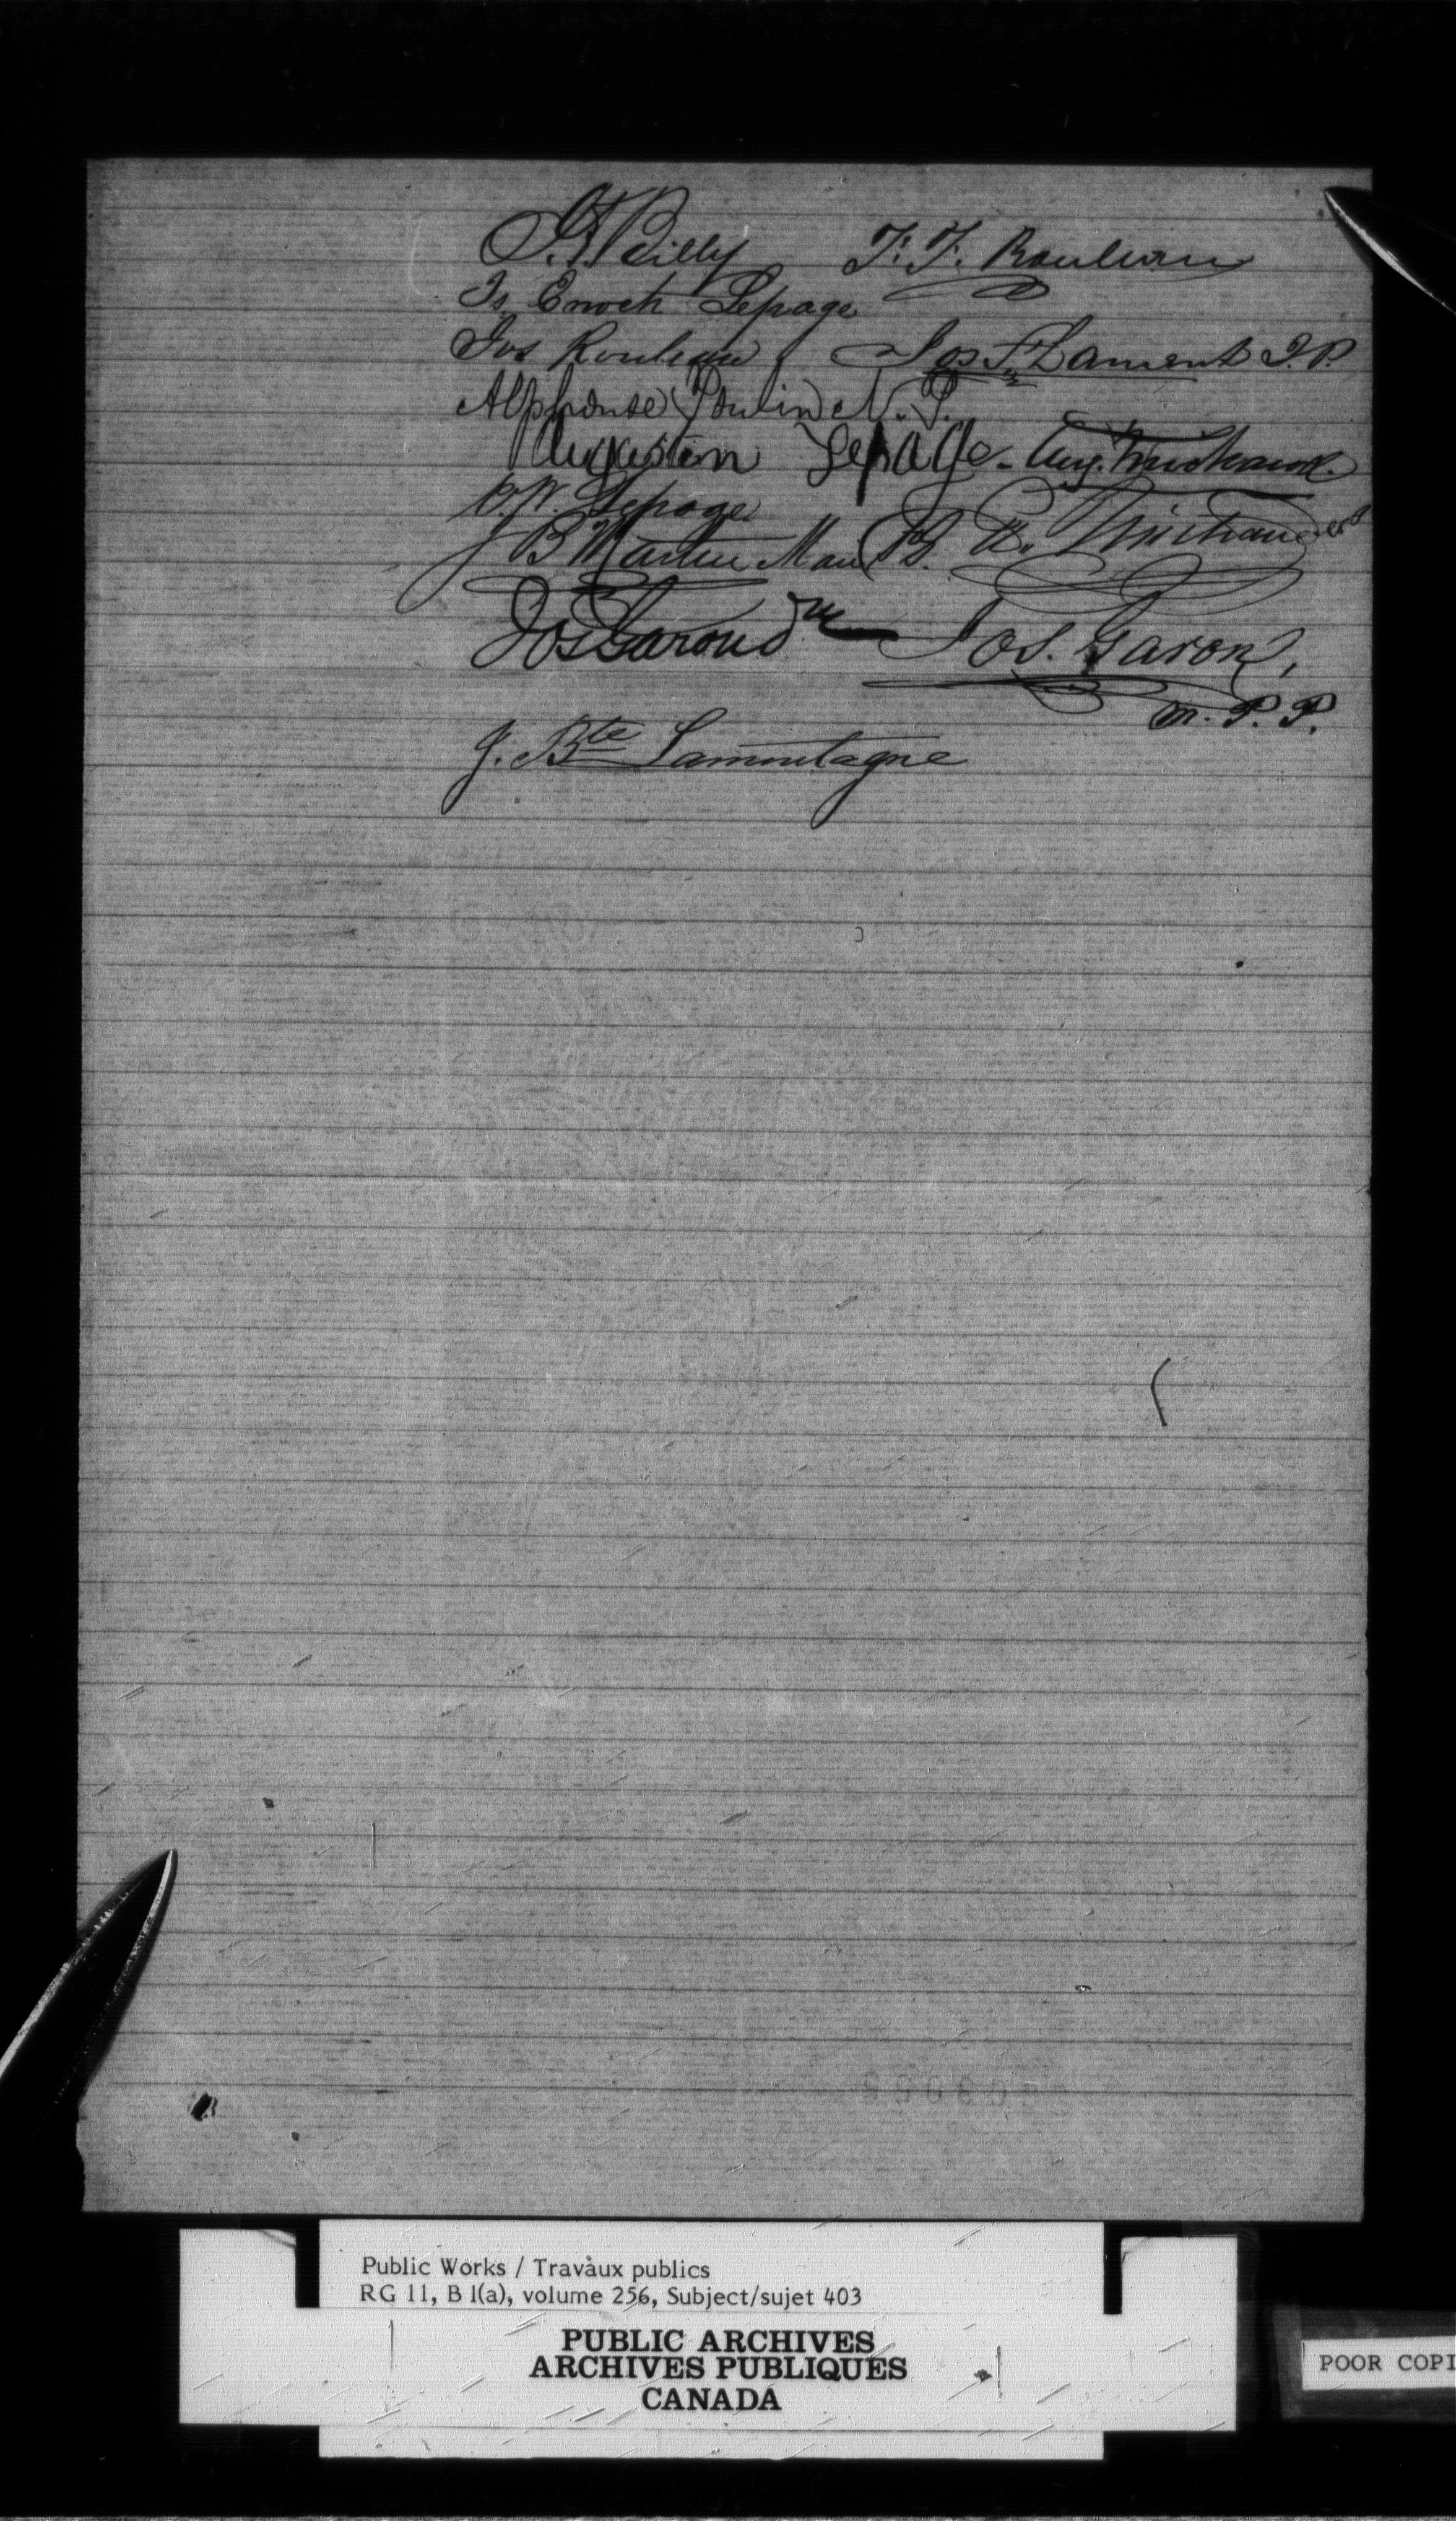 F. F. Rouleau
Is. Enoch Lepage
Jos Rouleau Jos. Lament J.P.
Alphonse Poulin N. P.
Augustin Lepage - Aug. Michaud
P. N. Lepage
J B Martin R. Michaud
Jos Garon Jos. Garon,
m. P. P.
J. Bte Lamontagne
Public Works / Travàux publics
RG 11, B 1(a), volume 256, Subject/sujet 403
PUBLIC ARCHIVES
ARCHIVES PUBLIQUES
CANADA
POOR COPI